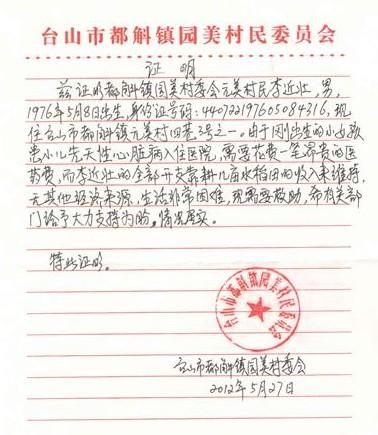 台山市都斛镇园美村民委员会
证 明
兹证明都斛镇园美村委会元美村民李近壮,男,
1976年5月8日出生,身份证号码:440722197605084316,现
住台山市都斛镇元美村四巷3号之一。由于刚出生的小女孩
患小儿先天性心脏病入住医院,需要花费一笔昂贵的医
药费,而李近壮的全部开支靠耕几亩水稻田的收入来维持,
无其他经济来源,生活非常困难,现需要救助,希有关部
门给予大力支持为盼。情况属实。
特此证明。
台山市都斛镇园美村民委员会
台山市都斛镇园美村委会
2012年5月27日